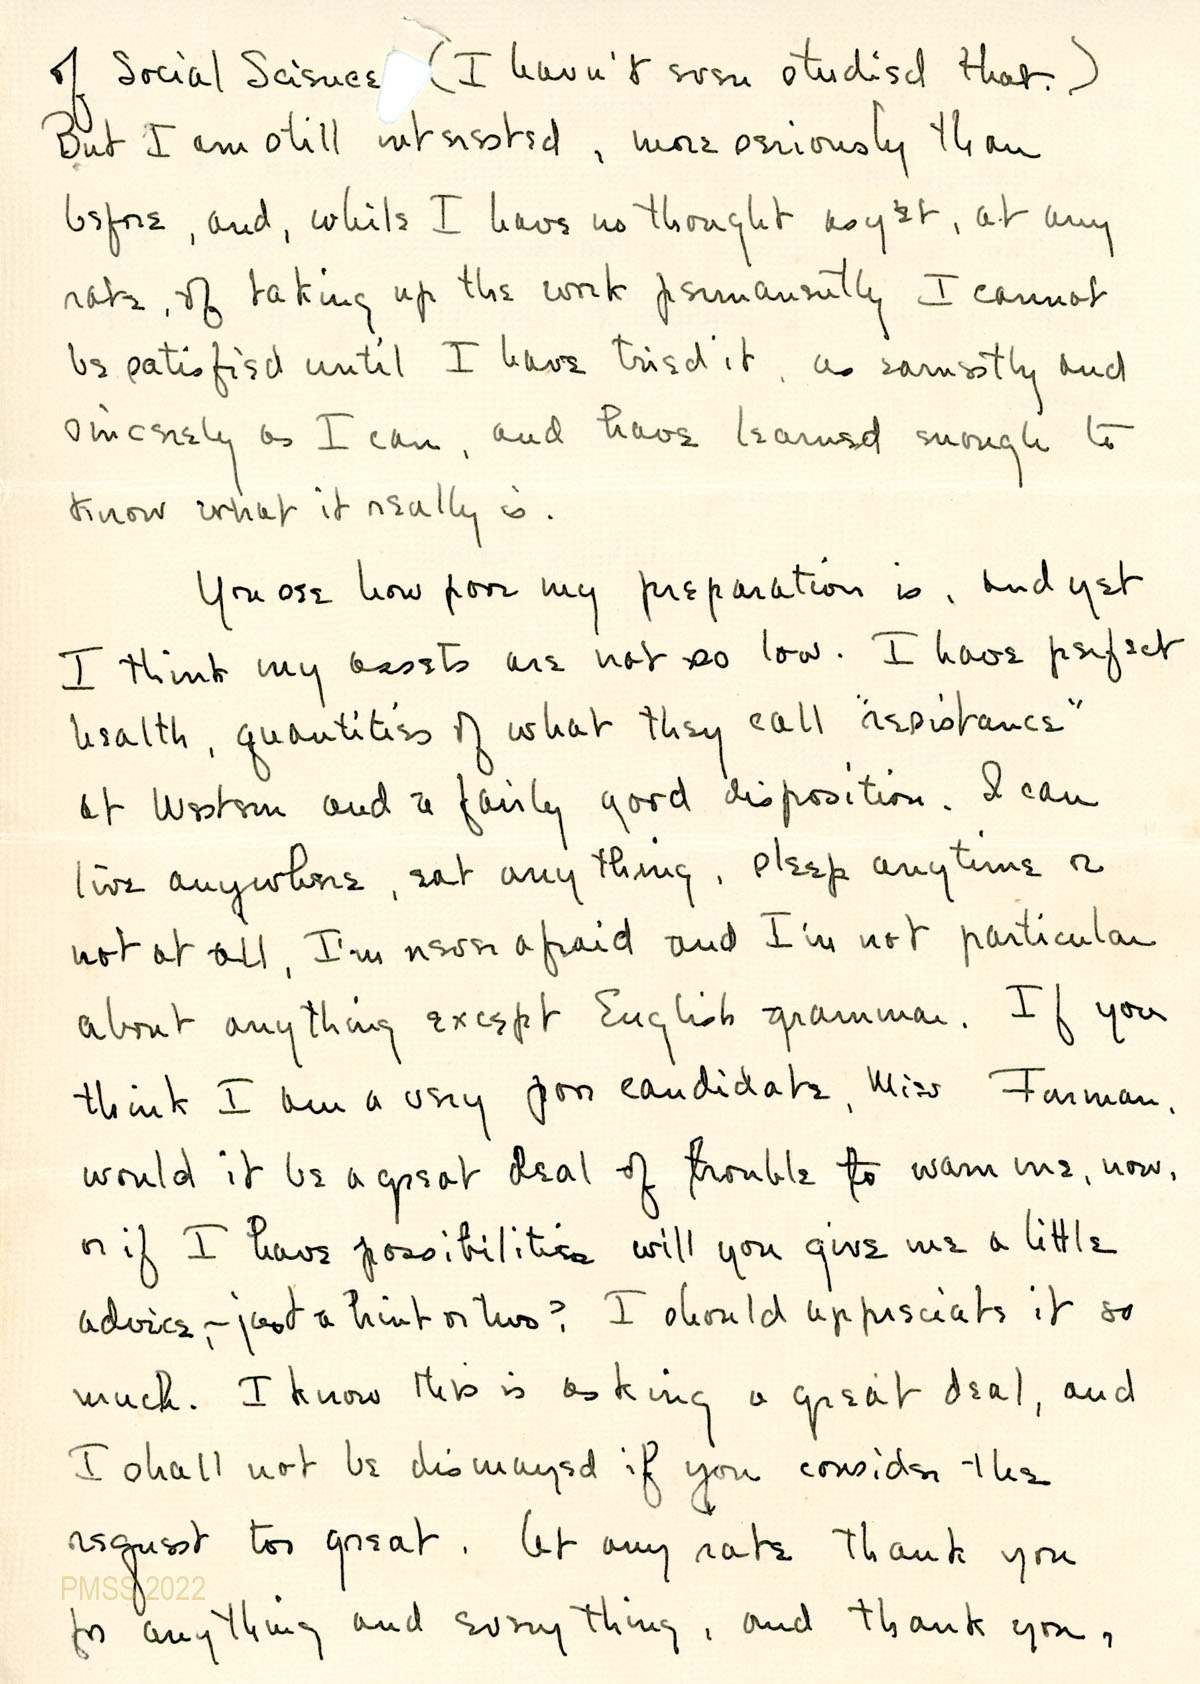 of Social Science (I havn't even studied that.)
But I am still interested, more seriously than
before, and, while I have no thought as yet, at any
rate, of taking up the work permanently I cannot
be satisfied until I have tried it, as earnestly and
sincerely as I can, and have learned enough to
know what it really is.
You see how poor my preparation is, and yet
I think my assets are not so low. I have perfect
health, quantities of what they call "resistance"
at Western and a fairly good disposition. I can
live anywhere, eat anything, sleep anytime or
not at all, I'm never afraid and I'm not particular
about anything except English grammar. If you
think I am a very poor candidate, Miss Furman,
would it be a great deal of trouble to warn me, now,
or if I have possibilities will you give me a little
advice, – just a hint or two? I should appreciate it so
much. I know this is asking a great deal, and
I shall not be dismayed if you consider the
request too great. At any rate thank you
PMSS 2022
for anything and everything, and thank you,